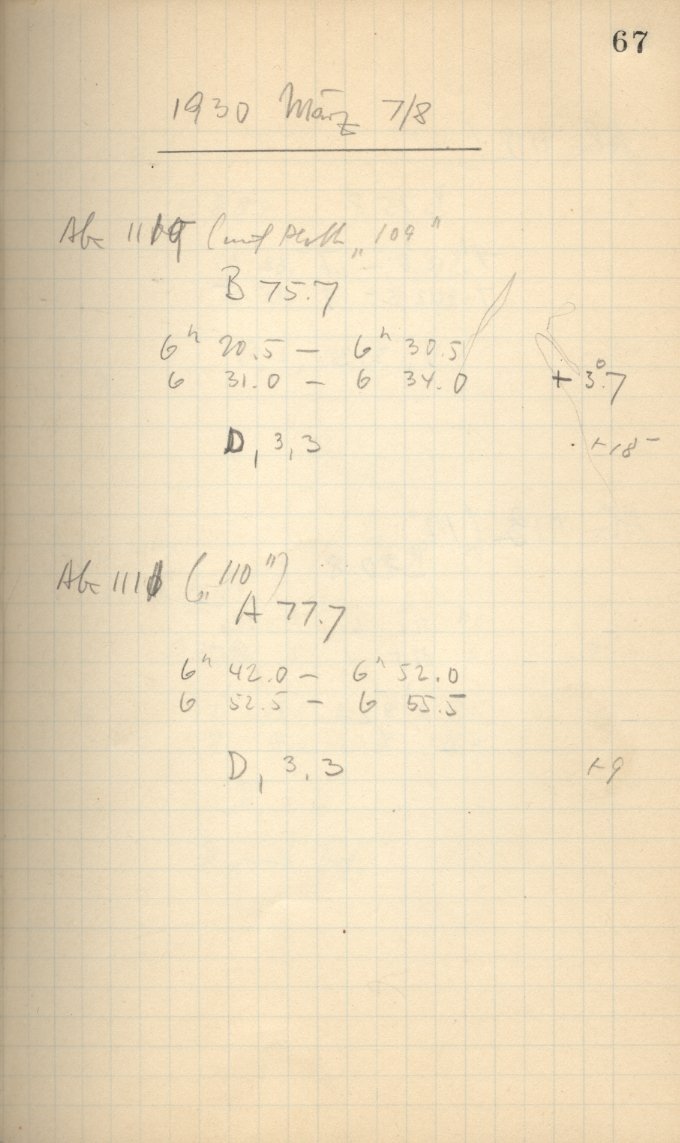 67
1930 März 7/8
AG 111 „109"
B 75.7
6ʰ 20.5 – 6ʰ 30.5
6 31.0 – 6 34.0 + 3°.7
D, 3, 3 +18–
AG 111 („110")
A 77.7
6ʰ 42.0 – 6ʰ 52.0
6 52.5 – 6 55.5
D, 3, 3 +9